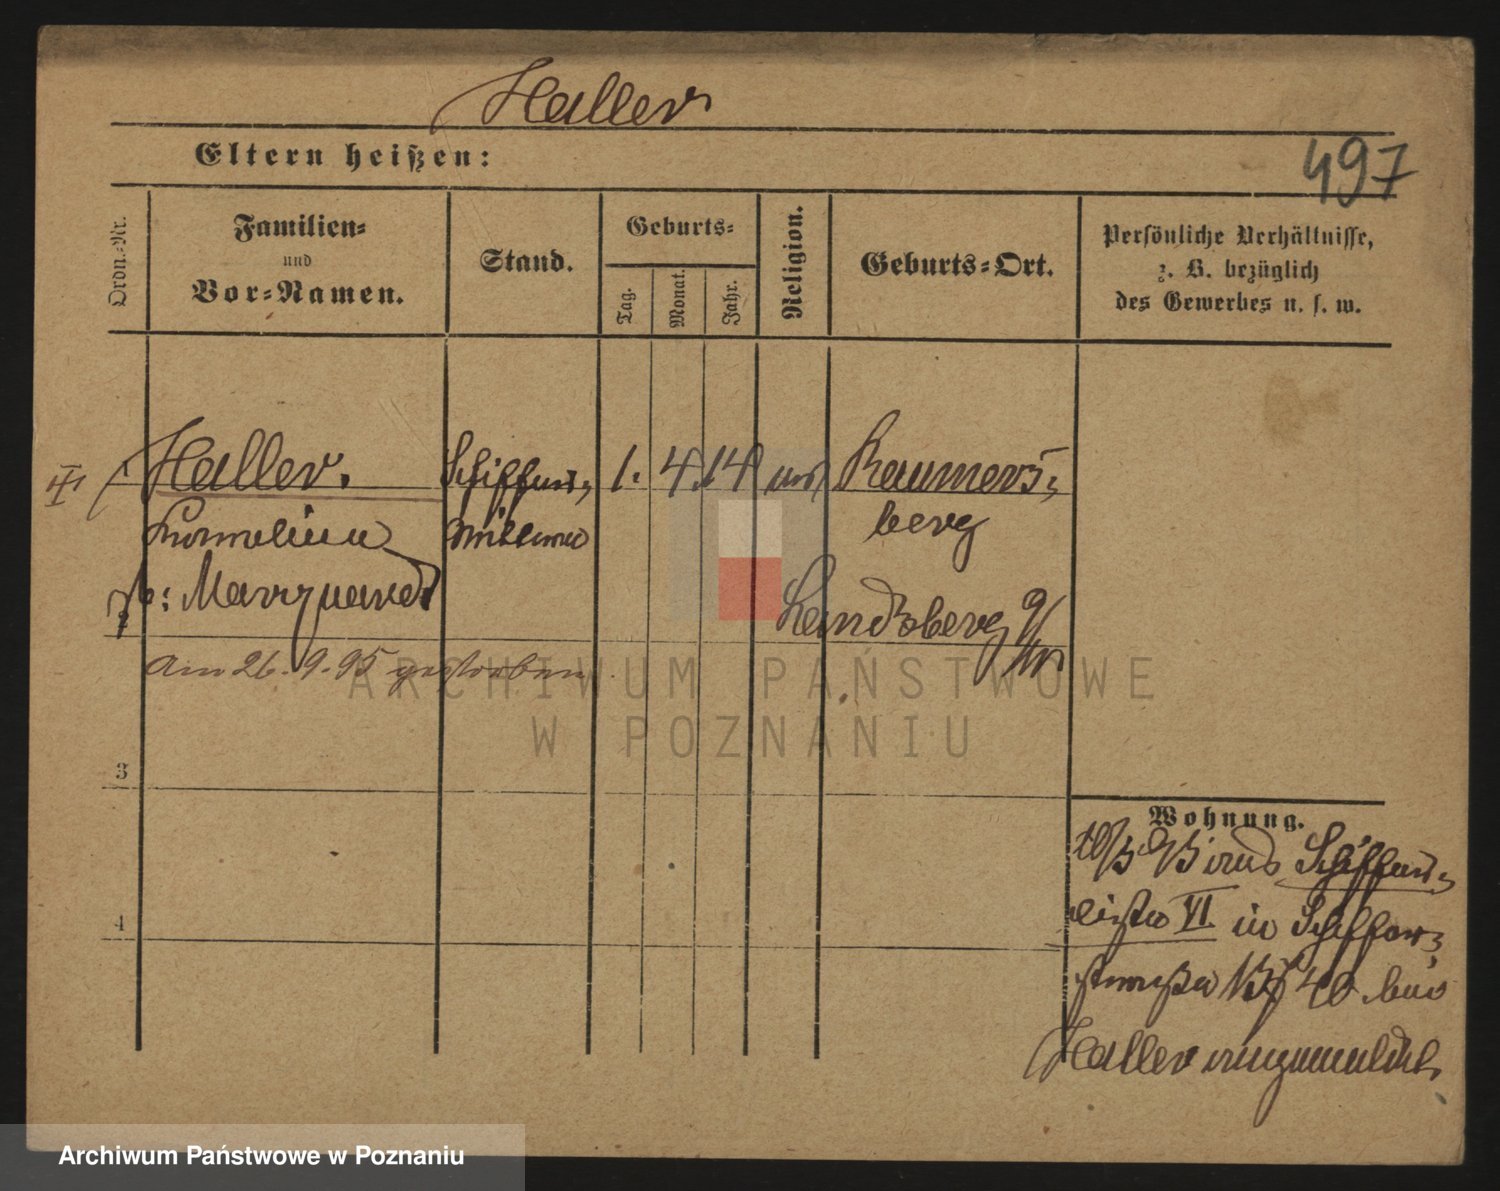 Haller
Eltern heißen:
497
Ordn.-Nr.
Familien-
und
Vor-Namen.
Stand.
Geburts-
Tag.
Monat.
Jahr.
Religion.
Geburts-Ort.
Persönliche Verhältnisse,
z. B. bezüglich
des Gewerbes u. s. w.
Haller. Schiffer- 1. 4. 14 Raumers-
wittwe berg
Landsberg a/W
am 26. 9. 95 gestorben
3
4
Wohnung.
Schiffer-
VI. in Schiffer-
straße 40 bei
Haller angemeldet.
ARCHIWUM PAŃSTWOWE
W POZNANIU
Archiwum Państwowe w Poznaniu